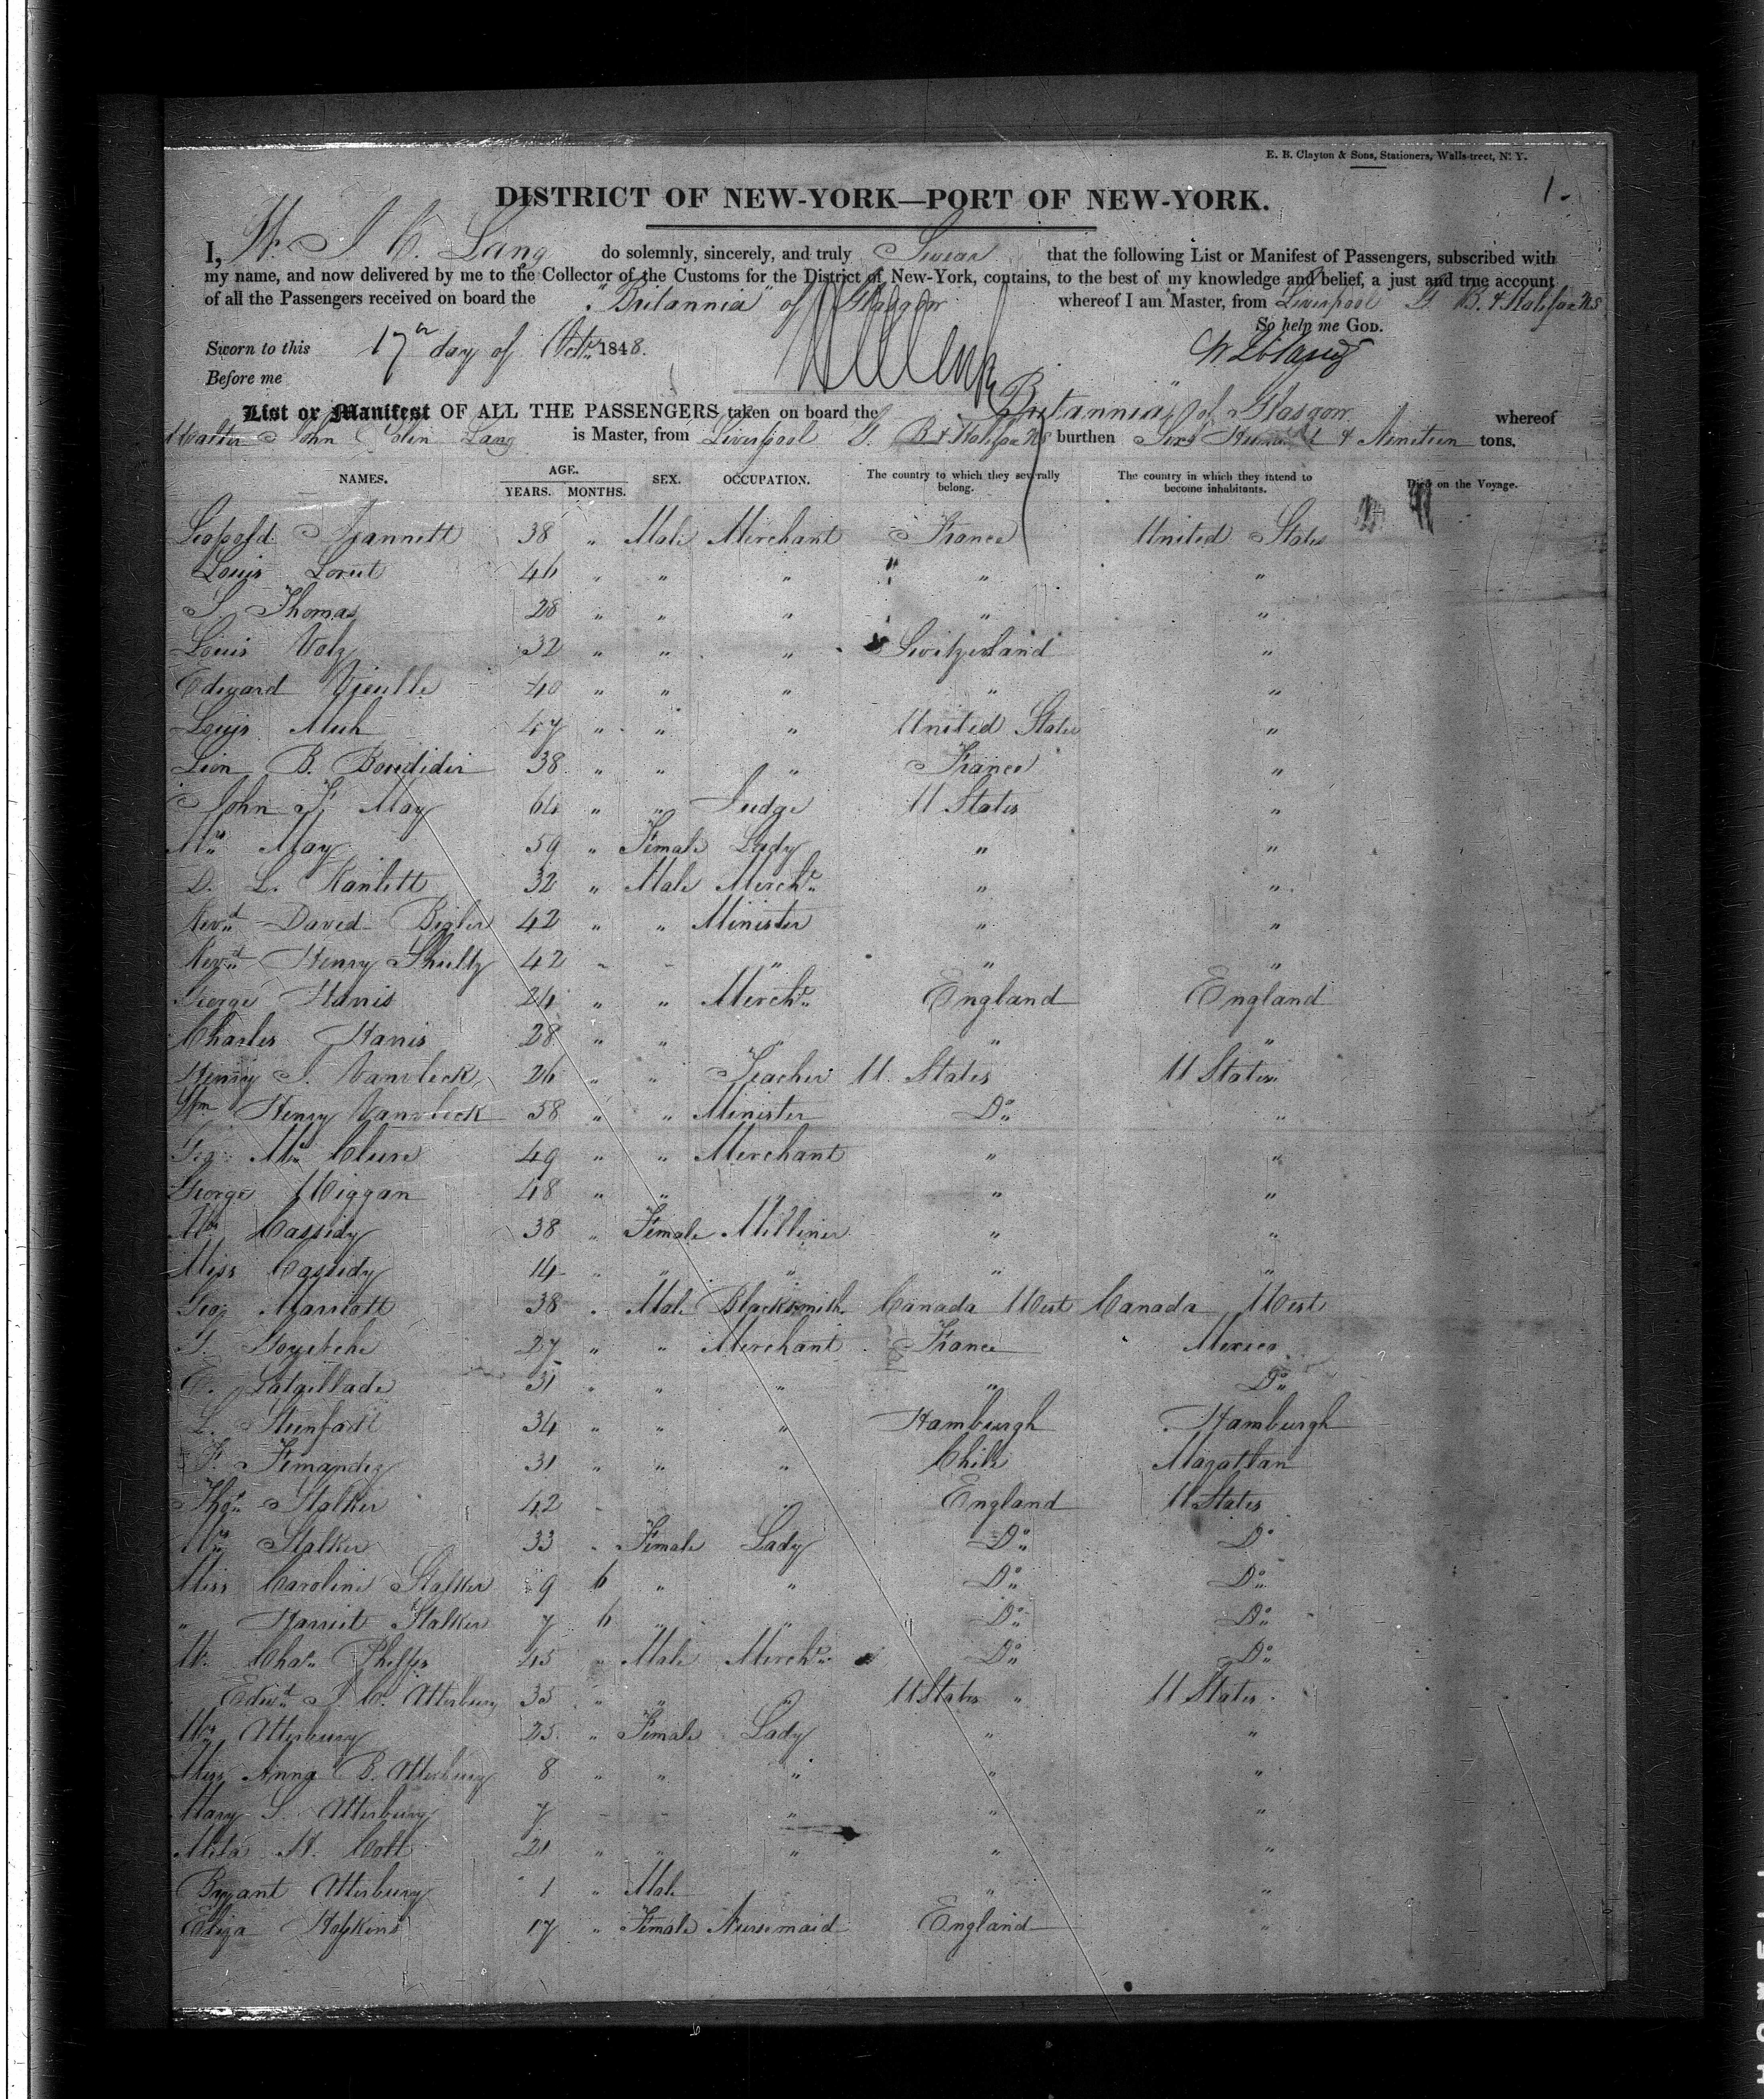 E. B. Clayton & Sons, Stationers, Wall-street, N. Y.
1.
DISTRICT OF NEW-YORK—PORT OF NEW-YORK.
I, W. J. C. Lang do solemnly, sincerely, and truly Swear that the following List or Manifest of Passengers, subscribed with
my name, and now delivered by me to the Collector of the Customs for the District of New-York, contains, to the best of my knowledge and belief, a just and true account
of all the Passengers received on board the "Britannia" of Glasgow whereof I am Master, from Liverpool G. B. & Halifax NS
So help me GOD.
Sworn to this 17th day of Octr. 1848. W J C Lang
Before me
List or Manifest OF ALL THE PASSENGERS taken on board the Britannia, of Glasgow whereof
Walter John Colin Lang is Master, from Liverpool G. B & Halifax NS burthen Six Hundred & Nineteen tons.
NAMES. AGE. YEARS. MONTHS. SEX. OCCUPATION. The country to which they severally belong. The country in which they intend to become inhabitants. Died on the Voyage.
Leopold Jeannett 38 " Male Merchant France United States
Louis 46 " " " " "
S. Thomas 28 " " " " "
Louis Volz 32 " " " Switzerland "
Edward 40 " " " " "
Louis 47 " " " United States "
Leon B. 38 " " " France "
John F. May 64 " " Judge U States "
Mrs May 59 " Female Lady " "
D. L. Ranlett 32 " Male Mercht. " "
Revd. David Bigler 42 " " Minister " "
Revd. Henry Shultz 42 " " " " "
George Harris 24 " " Mercht. England England
Charles Harris 28 " " " " "
Henry J. Vanvleck 26 " " Teacher U. States U States
Wm Henry Vanvleck 58 " " Minister Do. "
Geo. Mc Clure 49 " " Merchant " "
George Wiggan 48 " " " " "
Mrs Cassidy 38 " Female Milliner " "
Miss Cassidy 14 " " " " "
Geo. Marriott 38 " Male Blacksmith Canada West Canada West
Goyeteche 27 " " Merchant France Mexico
E. Latgillade 31 " " " " Do.
L. 34 " " " Hamburgh Hamburgh
F. Fernandez 31 " " " Chili Mazatlan
Thos. Stalker 42 " England U States
Mrs Stalker 33 " Female Lady Do. Do
Miss Caroline Stalker 9 6 " " Do. Do.
" Harriet Stalker 7 6 " " Do. Do.
Mr. Chas. Phelps 45 " Male Mercht. Do. Do.
Edwd. J. C. Atterbury 35 " " " U States " U States
Mrs Atterbury 25 " Female Lady " "
Miss Anna B. Atterbury 8 " " " " "
Mary S. Atterbury 7 " " " " "
21 " " " " "
Bryant Atterbury 1 " Male " "
Eliza Hopkins 17 " Female Nursemaid England "